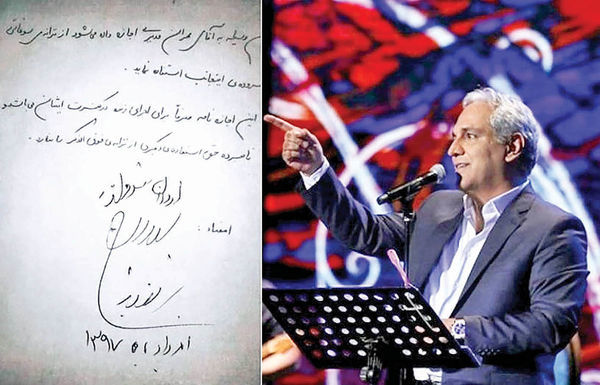 ن وسیله به آقای مهران مدیری اجازه داده می‌شود از ترانه‌ی سوغاتی
سروده‌ی اینجانب استفاده نماید .
این اجازه نامه صرفاً برای اجرای زنده در کنسرت ایشان می‌باشد
نامبرده حق استفاده‌ی دیگری از ترانه‌ی فوق الذکر را ندارد .
اردلان سرفراز
امضاء :
امرداد ماه ۱۳۹۷